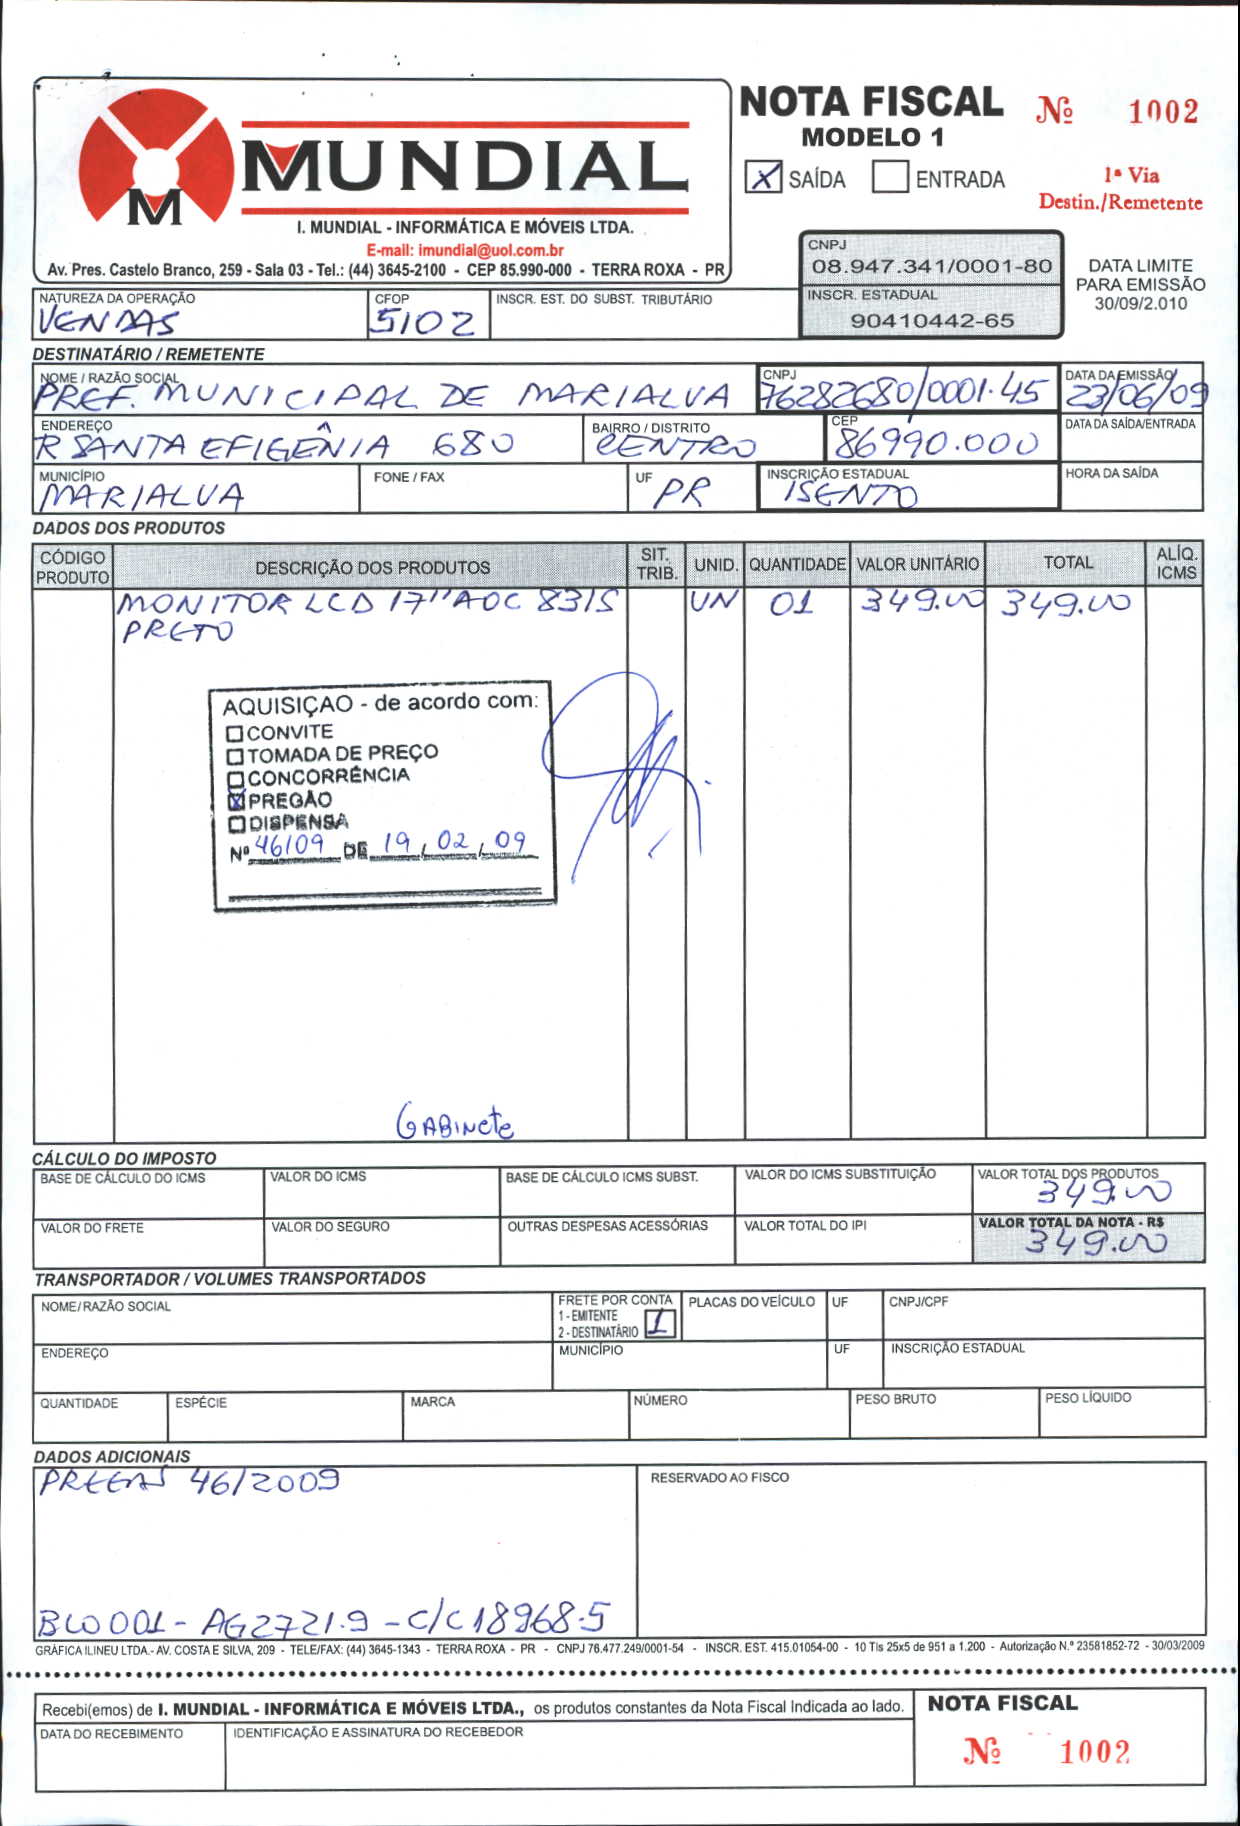 MUNDIAL
M
I. MUNDIAL - INFORMÁTICA E MÓVEIS LTDA.
E-mail: imundial@uol.com.br
Av. Pres. Castelo Branco, 259 - Sala 03 - Tel.: (44) 3645-2100 - CEP 85.990-000 - TERRA ROXA - PR
NOTA FISCAL
MODELO 1
Nº 1002
X SAÍDA ENTRADA
1ª Via
Destin./Remetente
CNPJ
08.947.341/0001-80
INSCR. ESTADUAL
90410442-65
DATA LIMITE
PARA EMISSÃO
30/09/2.010
NATUREZA DA OPERAÇÃO CFOP INSCR. EST. DO SUBST. TRIBUTÁRIO
VENDAS 5102
DESTINATÁRIO / REMETENTE
NOME / RAZÃO SOCIAL CNPJ DATA DA EMISSÃO
PREF. MUNICIPAL DE MARIALVA 76282680/0001-45 23/06/09
ENDEREÇO BAIRRO / DISTRITO CEP DATA DA SAÍDA/ENTRADA
R SANTA EFIGÊNIA 680 CENTRO 86990.000
MUNICÍPIO FONE / FAX UF INSCRIÇÃO ESTADUAL HORA DA SAÍDA
MARIALVA PR ISENTO
DADOS DOS PRODUTOS
CÓDIGO PRODUTO DESCRIÇÃO DOS PRODUTOS SIT. TRIB. UNID. QUANTIDADE VALOR UNITÁRIO TOTAL ALÍQ. ICMS
MONITOR LCD 17" AOC 831S UN 01 349.00 349.00
PRETO
AQUISIÇAO - de acordo com:
CONVITE
TOMADA DE PREÇO
CONCORRÊNCIA
X PREGÃO
DISPENSA
Nº 46/09 DE 19, 02, 09
GABINete
CÁLCULO DO IMPOSTO
BASE DE CÁLCULO DO ICMS VALOR DO ICMS BASE DE CÁLCULO ICMS SUBST. VALOR DO ICMS SUBSTITUIÇÃO VALOR TOTAL DOS PRODUTOS
349.00
VALOR DO FRETE VALOR DO SEGURO OUTRAS DESPESAS ACESSÓRIAS VALOR TOTAL DO IPI VALOR TOTAL DA NOTA - R$
349.00
TRANSPORTADOR / VOLUMES TRANSPORTADOS
NOME/RAZÃO SOCIAL FRETE POR CONTA PLACAS DO VEÍCULO UF CNPJ/CPF
1 - EMITENTE
2 - DESTINATÁRIO 1
ENDEREÇO MUNICÍPIO UF INSCRIÇÃO ESTADUAL
QUANTIDADE ESPÉCIE MARCA NÚMERO PESO BRUTO PESO LÍQUIDO
DADOS ADICIONAIS
46/2009 RESERVADO AO FISCO
001 - AG2721.9 - C/C 18968-5
GRÁFICA ILINEU LTDA.- AV. COSTA E SILVA, 209 - TELE/FAX: (44) 3645-1343 - TERRA ROXA - PR - CNPJ 76.477.249/0001-54 - INSCR. EST. 415.01054-00 - 10 Tls 25x5 de 951 a 1.200 - Autorização N.º 23581852-72 - 30/03/2009
Recebi(emos) de I. MUNDIAL - INFORMÁTICA E MÓVEIS LTDA., os produtos constantes da Nota Fiscal Indicada ao lado.
NOTA FISCAL
DATA DO RECEBIMENTO IDENTIFICAÇÃO E ASSINATURA DO RECEBEDOR
Nº 1002